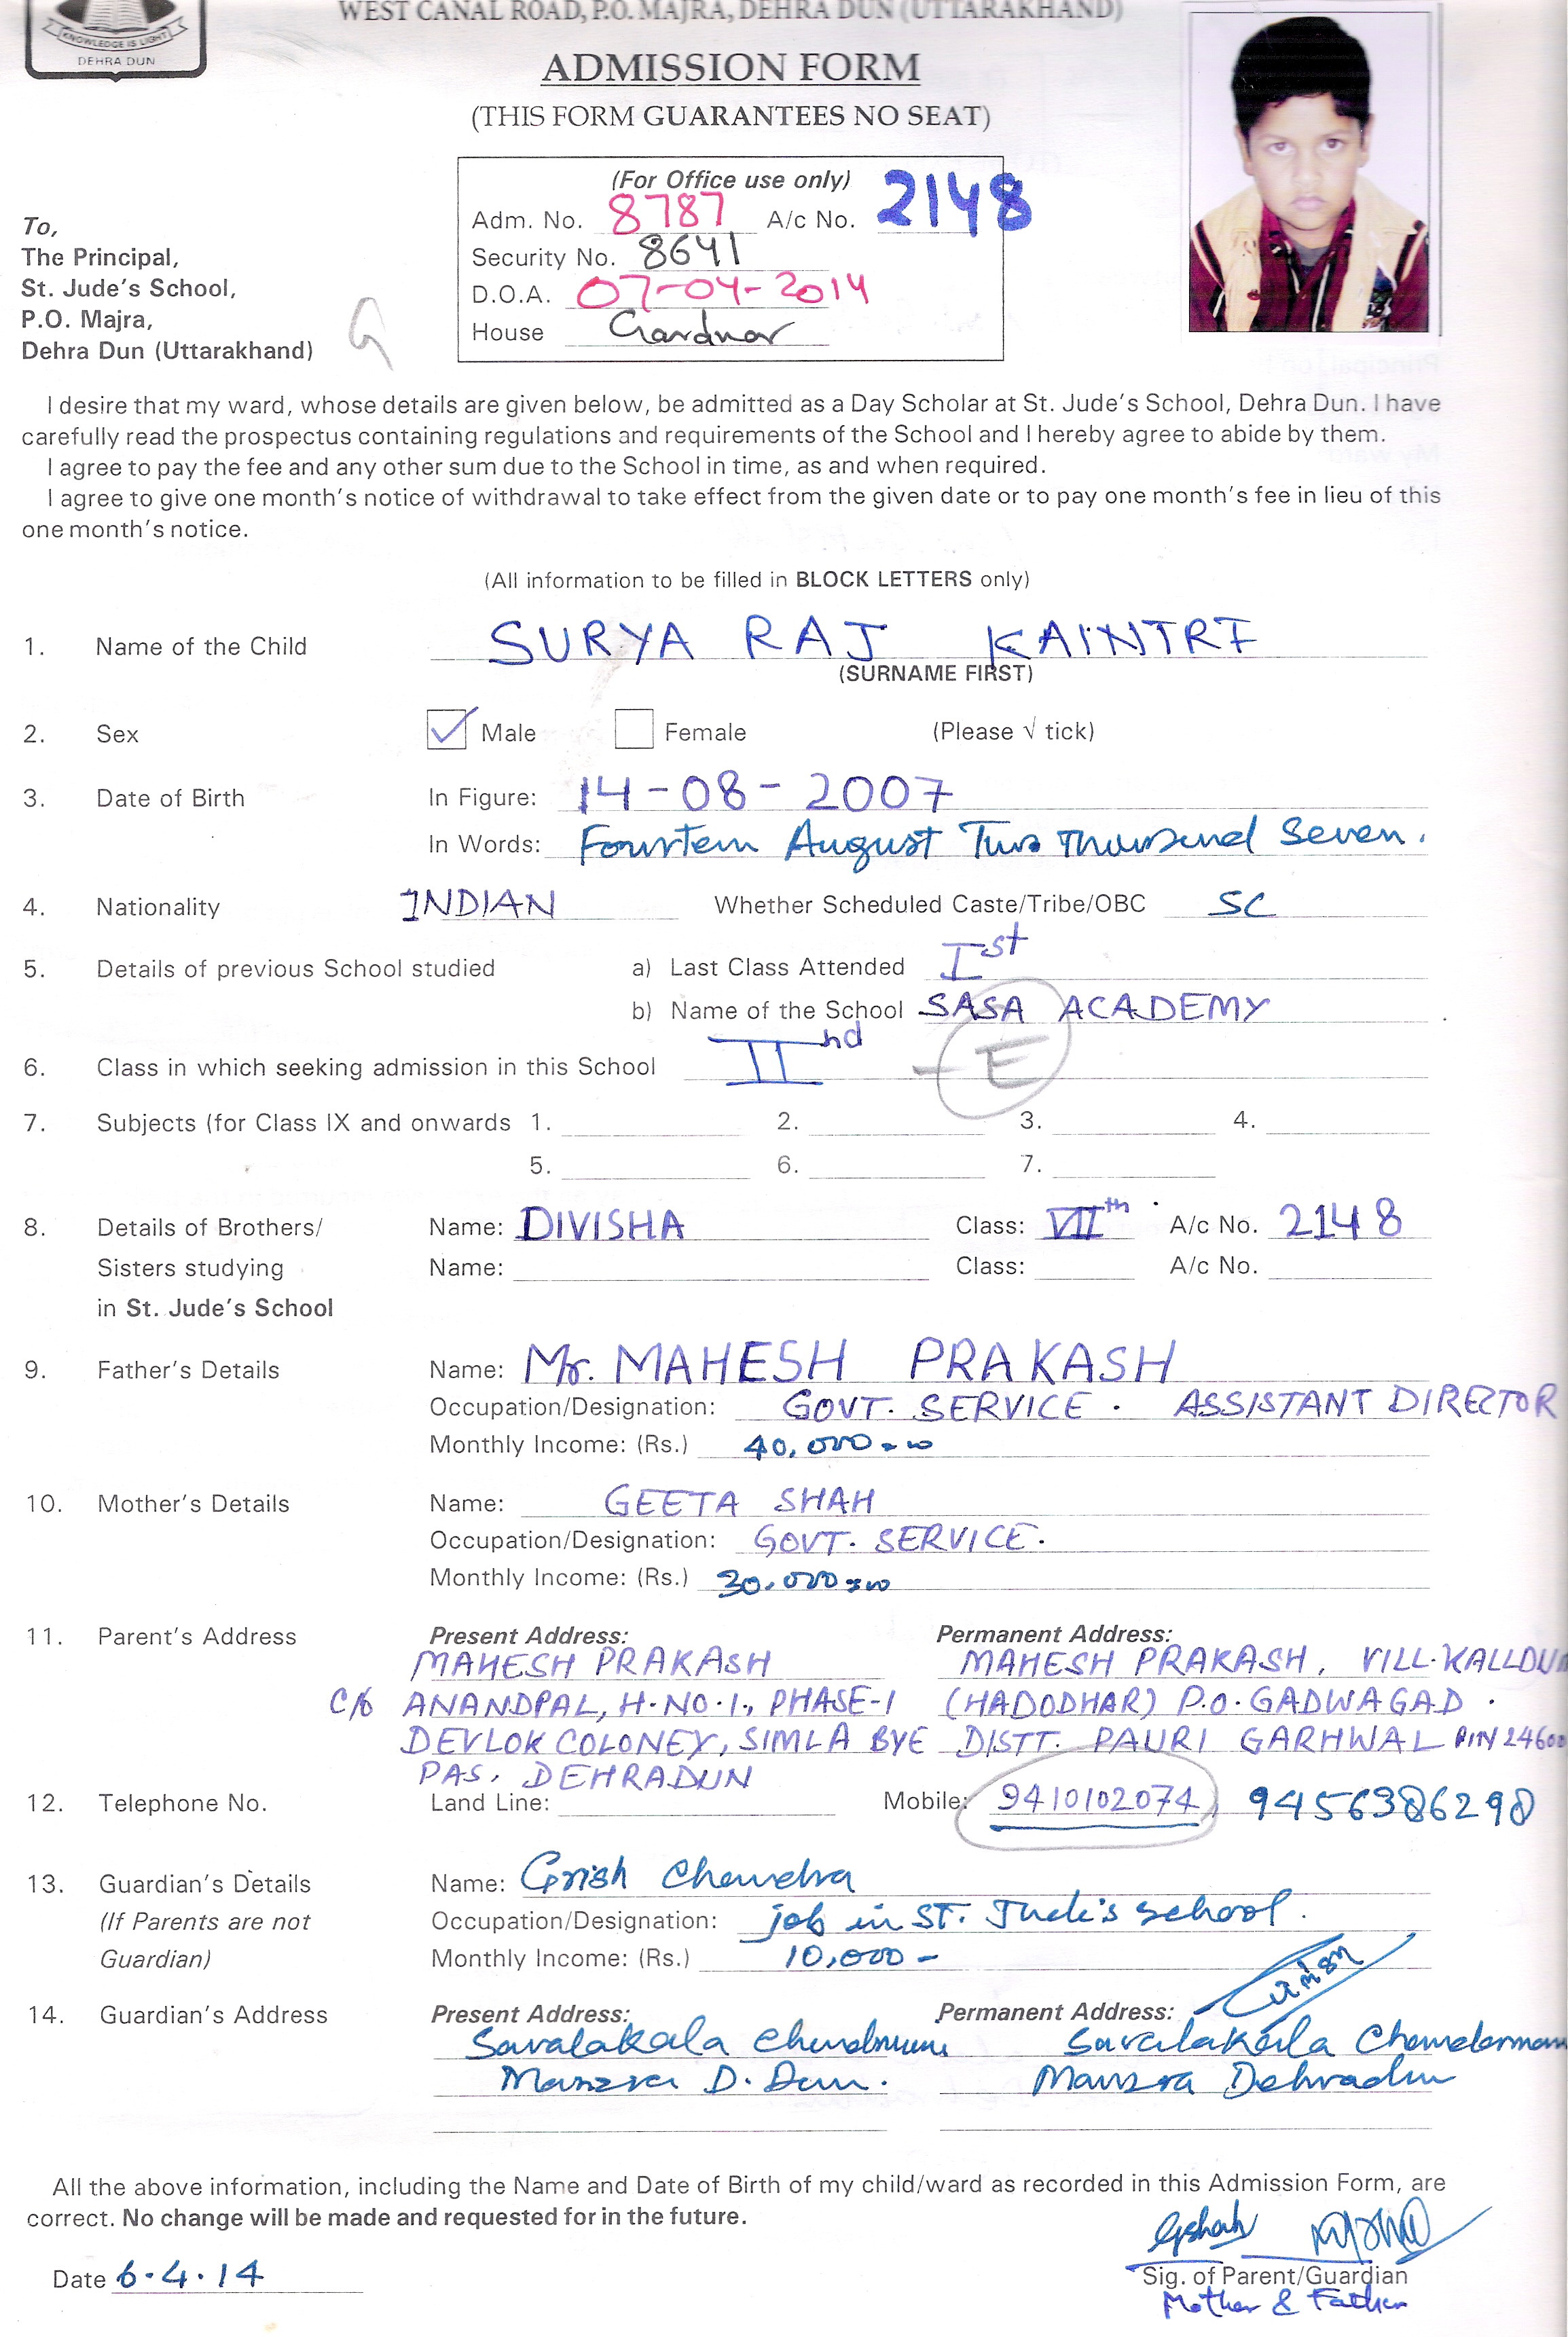 WEST CANAL ROAD, P.O. MAJRA, DEHRA DUN (UTTARAKHAND)
KNOWLEDGE IS LIGHT
DEHRA DUN
ADMISSION FORM
(THIS FORM GUARANTEES NO SEAT)
(For Office use only)
Adm. No. 8787 A/c No. 2148
Security No. 8641
D.O.A. 07-04-2014
House Gardnar
To,
The Principal,
St. Jude's School,
P.O. Majra,
Dehra Dun (Uttarakhand)
G
I desire that my ward, whose details are given below, be admitted as a Day Scholar at St. Jude's School, Dehra Dun. I have
carefully read the prospectus containing regulations and requirements of the School and I hereby agree to abide by them.
I agree to pay the fee and any other sum due to the School in time, as and when required.
I agree to give one month's notice of withdrawal to take effect from the given date or to pay one month's fee in lieu of this
one month's notice.
(All information to be filled in BLOCK LETTERS only)
1. Name of the Child SURYA RAJ KAINTRF
(SURNAME FIRST)
2. Sex ✓ Male Female (Please √ tick)
3. Date of Birth In Figure: 14-08-2007
In Words: Fourtem August Two Thousend Seven.
4. Nationality INDIAN Whether Scheduled Caste/Tribe/OBC SC
5. Details of previous School studied a) Last Class Attended Ist
b) Name of the School SASA ACADEMY
6. Class in which seeking admission in this School IInd - E
7. Subjects (for Class IX and onwards 1. 2. 3. 4.
5. 6. 7.
8. Details of Brothers/ Name: DIVISHA Class: VIIth A/c No. 2148
Sisters studying Name: Class: A/c No.
in St. Jude's School
9. Father's Details Name: Mr. MAHESH PRAKASH
Occupation/Designation: GOVT. SERVICE. ASSISTANT DIRECTOR
Monthly Income: (Rs.) 40,000=00
10. Mother's Details Name: GEETA SHAH
Occupation/Designation: GOVT. SERVICE.
Monthly Income: (Rs.) 30,000=00
11. Parent's Address Present Address: Permanent Address:
MAHESH PRAKASH MAHESH PRAKASH, VILL-KALLOUN
C/o ANANDPAL, H.NO.1., PHASE-1 (HADODHAR) P.O. GADWAGAD.
DEVLOK COLONEY, SIMLA BYE DISTT. PAURI GARHWAL PIN 24600
PAS, DEHRADUN
12. Telephone No. Land Line: Mobile: 9410102074, 9456386298
13. Guardian's Details Name: Grish Chandra
(If Parents are not Occupation/Designation: job in ST. Jude's School.
Guardian) Monthly Income: (Rs.) 10,000 -
14. Guardian's Address Present Address: Permanent Address:
D. Dun. Dehradun
All the above information, including the Name and Date of Birth of my child/ward as recorded in this Admission Form, are
correct. No change will be made and requested for in the future.
Date 6.4.14 Gshah
Sig. of Parent/Guardian
Mother & Father